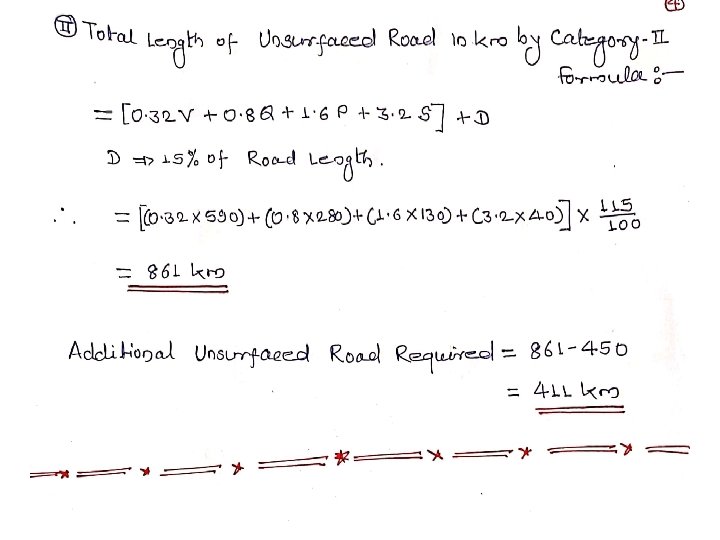 ④
Ⅱ Total Length of Unsurfaced Road in km by Category-II
formula :—
= [0.32V + 0.8Q + 1.6P + 3.2S] + D
D ⇒ 15% of Road Length.
∴ = [(0.32×590)+(0.8×280)+(1.6×130)+(3.2×40)] × 115/100
= 861 km
Additional Unsurfaced Road Required = 861-450
= 411 km